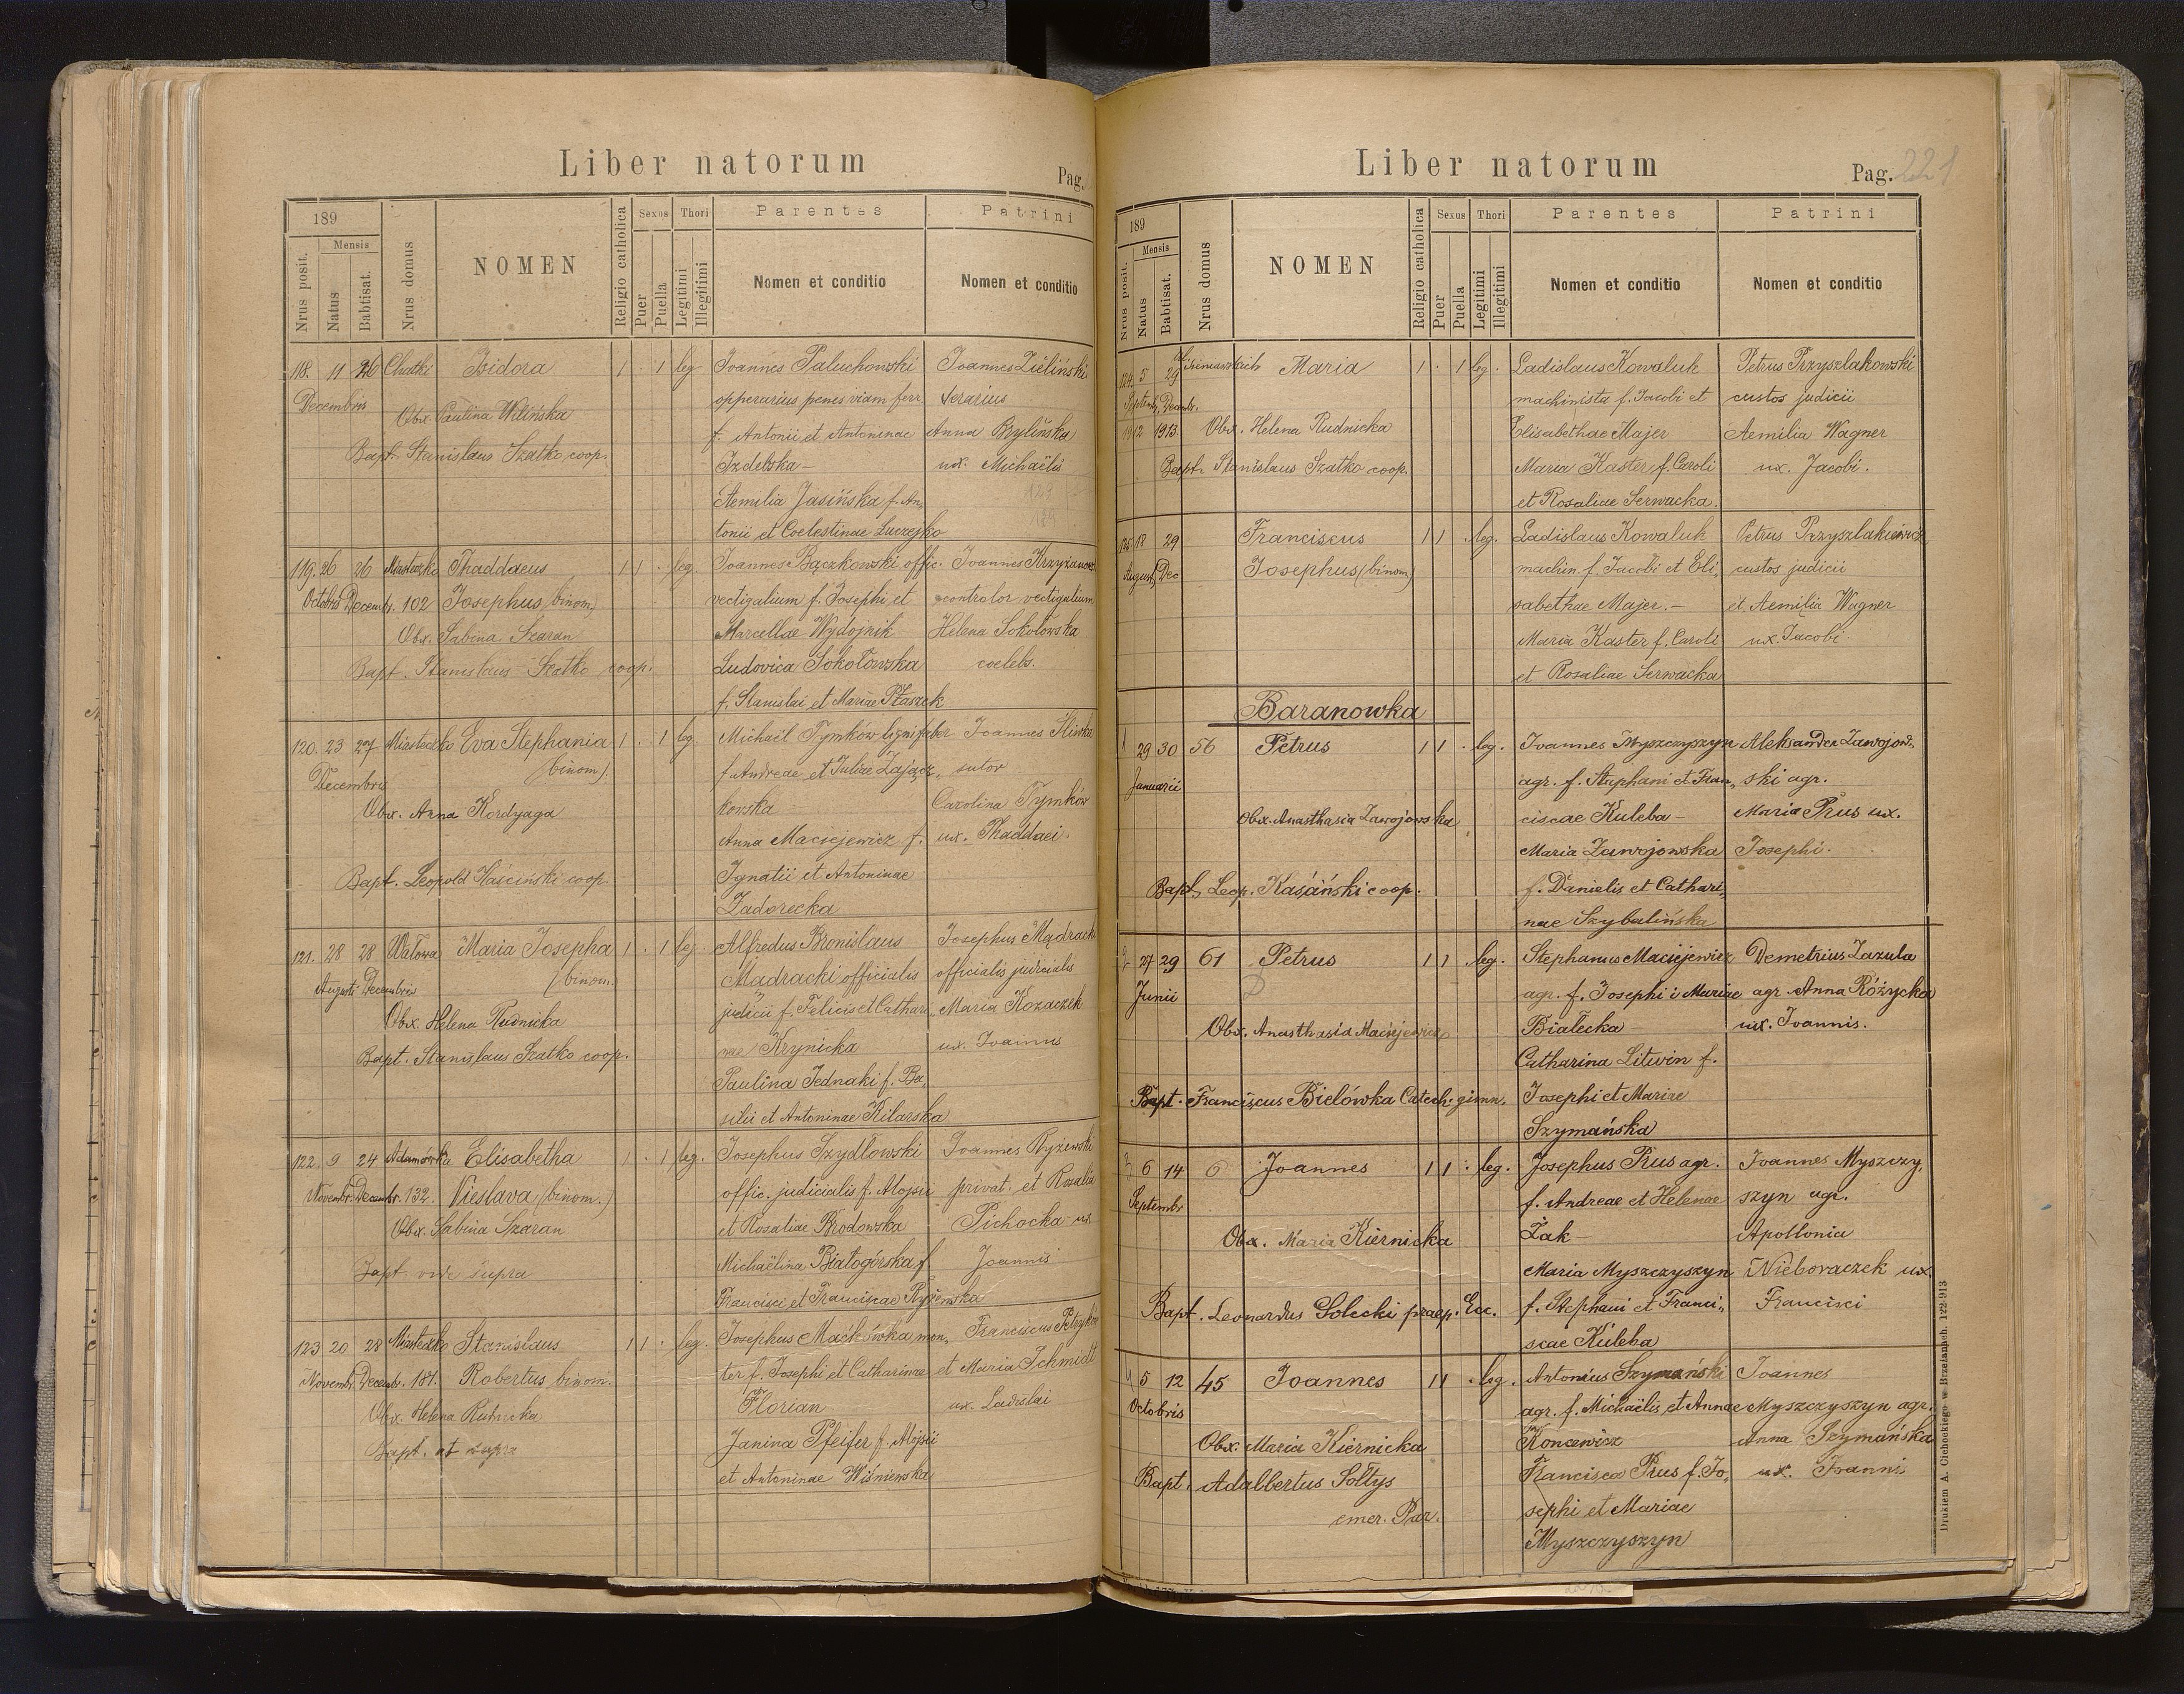 Liber natorum
Pag.
189
Mensis
Nrus posit.
Natus
Babtisat.
Nrus domus
NOMEN
Religio catholica
Sexus
Puer
Puella
Thori
Legitimi
Illegitimi
Parentes
Nomen et conditio
Patrini
Nomen et conditio
118. 11 26 Chatki Isidora 1 . 1 leg. Joannes Paluchowski Joannes Zieliński
Decembris opperarius penes viam ferr. aerarius
Obx. Paulina Wilińska f. Antonii et Antoninae Anna Brylińska
Bapt. Stanislaus Szatko coop. Izdebska - ux. Michaëlis
Aemilia Jasińska f. An,
tonii et Coelestinae Luczejko
119. 26 26 Miasteczko Thaddaeus 1 1 . leg. Joannes Bączkowski offic. Joannes Krzyżanow
Octobris Decembr. 102 Josephus (binom) vectigalium f. Josephi et controlor vectigalium
Obx. Sabina Szaran Marcellae Wydojnik Helena Sokołowska
Bapt. Stanislaus Szatko coop. Ludovica Sokołowska coelebs.
f. Stanislai et Mariae Ptaszek
120. 23 27 Miasteczko Eva Stephania 1 . 1 leg. Michaël Tymków lignifaber Joannes Śliwka
(binom). f. Andreae et Juliae Zającz, sutor
Decembris
Obx. Anna Kordyaga kowska - Carolina Tymków
Anna Maciejewicz f. ux. Thaddaei.
Bapt. Leopold Kaściński coop. Ignatii et Antoninae
Zadorecka
121. 28 28 Wałowa Maria Josepha 1 . 1 leg. Alfredus Bronislaus Josephus Mądracki
Augusti Decembris (binom. Mądracki officialis officialis judicialis
Obx. Helena Rudnicka judicii f. Felicis et Cathari, Maria Kozaczek
Bapt. Stanislaus Szatko coop. nae Krynicka ux. Joannis
Paulina Jednaki f. Ba,
silii et Antoninae Kilarska
122. 9 24 Adamówka Elisabetha 1 . 1 leg. Josephus Szydłowski Joannes Ryżewski
Novembr. Decembr. 132. Vieslava (binom.) offic. judicialis f. Alojsii privat. et Rosalia
Obx. Sabina Szaran et Rosaliae Brodowska Pichocka ux
Bapt. vide supra Michaëlina Białogórska f. Joannis
Francisci et Franciscae Ryżewska
123 20 28 Miasteczko Stanislaus 1 1 . leg. Josephus Maćkówka mon,
Novembr. Decembr. 181. Robertus binom. ter f. Josephi et Catharinae et Maria Schmidt
Obx. Helena Rudnicka Florian ux. Ladislai
Bapt. ut supra Janina Pfeifer f. Alojsii
et Antoninae Wiśniewska
Liber natorum
Pag. 221
189
Mensis
Nrus posit.
Natus
Babtisat.
Nrus domus
NOMEN
Religio catholica
Sexus
Puer
Puella
Thori
Legitimi
Illegitimi
Parentes
Nomen et conditio
Patrini
Nomen et conditio
124. 5 29 Maria 1 . 1 leg. Ladislaus Kowaluk Petrus Przyszlakowski
Septemb. Decembr. machinista f. Jacobi et custos judicii
1912 1913. Obx. Helena Rudnicka Elisabethae Majer Aemilia Wagner
Bapt. Stanislaus Szatko coop. Maria Kaster f. Caroli ux. Jacobi.
et Rosaliae Serwacka.
125 18 29 Franciscus 1 1 . leg. Ladislaus Kowaluk Petrus Przyszlakiewicz
August. Dec Josephus (binom) machin. f. Jacobi et Eli, custos judicii
sabethae Majer. - et Aemilia Wagner
Maria Kaster f. Caroli ux. Jacobi.
et Rosaliae Serwacka
Baranowka
1 29 30 56 Petrus 1 1 . leg. Joannes Myszczyszyn Aleksander Zawojow,
Januarii agr. f. Stephani et Fran, ski agr.
Obx. Anasthasia Zawojowska ciscae Kuleba - Maria Prus ux.
Maria Zawojowska Josephi.
Bapt. Leop. Kaściński coop. f. Danielis et Cathari,
nae Szybalińska
2 27 29 61 Petrus 1 1 . leg. Stephanus Maciejewicz Demetrius Zazula
Junii agr. f. Josephi i Mariae agr. Anna Różycka
Obx. Anasthasia Maciejewicz Białecka ux. Joannis.
Catharina Litwin f.
Bapt. Franciscus Bielówka Catech. gimn. Josephi et Mariae
Szymańska
3 6 14 6 Joannes 1 1 . leg. Josephus Prus agr. Joannes Myszczy,
Septembr f. Andreae et Helenae szyn agr.
Obx. Maria Kiernicka Żak - Apollonia
Maria Myszczyszyn Nieboraczek ux.
Bapt. Leonardus Solecki praep. Ecc. f. Stephani et Franci,, Francisci
scae Kuleba
4 5 12 45 Joannes 1 1 . leg. Antonius Szymański Joannes
Octobris agr. f. Michaëlis et Annae Myszczyszyn agr.
Obx. Maria Kiernicka Koncewicz Anna Szymańska
Bapt. Adalbertus Sołtys Francisca Prus f. Jo, ux. Joannis
emer. Par. sephi et Mariae
Myszczyszyn
Drukiem A. Cichockiego w Brzeżanach. 122-913